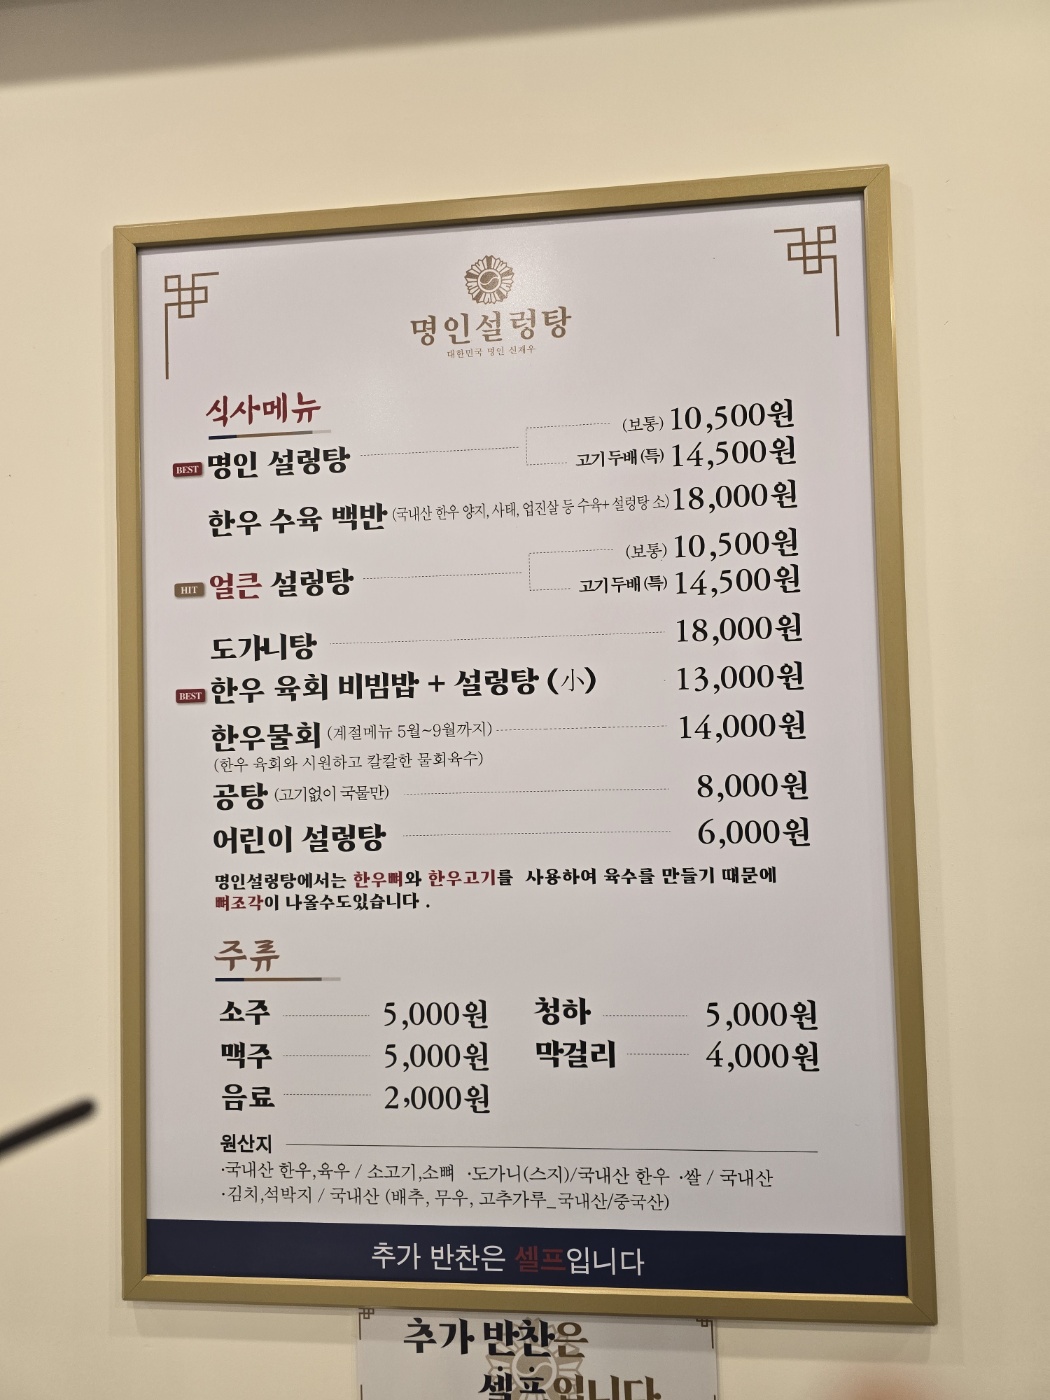 명인설렁탕
대한민국 명인 선재우
식사메뉴
BEST 명인 설렁탕 (보통) 10,500원
고기 두배(특) 14,500원
한우 수육 백반 (국내산 한우 양지, 사태, 업진살 등 수육+ 설렁탕 소) 18,000원
HIT 얼큰 설렁탕 (보통) 10,500원
고기 두배(특) 14,500원
도가니탕 18,000원
BEST 한우 육회 비빔밥 + 설렁탕 (小) 13,000원
한우물회 (계절메뉴 5월~9월까지) 14,000원
(한우 육회와 시원하고 칼칼한 물회육수)
공탕 (고기없이 국물만) 8,000원
어린이 설렁탕 6,000원
명인설렁탕에서는 한우뼈와 한우고기를 사용하여 육수를 만들기 때문에
뼈조각이 나올수도있습니다 .
주류
소주 5,000원 청하 5,000원
맥주 5,000원 막걸리 4,000원
음료 2,000원
원산지
·국내산 한우,육우 / 소고기,소뼈 ·도가니(스지)/국내산 한우 ·쌀 / 국내산
·김치,석박지 / 국내산 (배추, 무우, 고추가루_국내산/중국산)
추가 반찬은 셀프입니다
추가 반찬은
셀프입니다